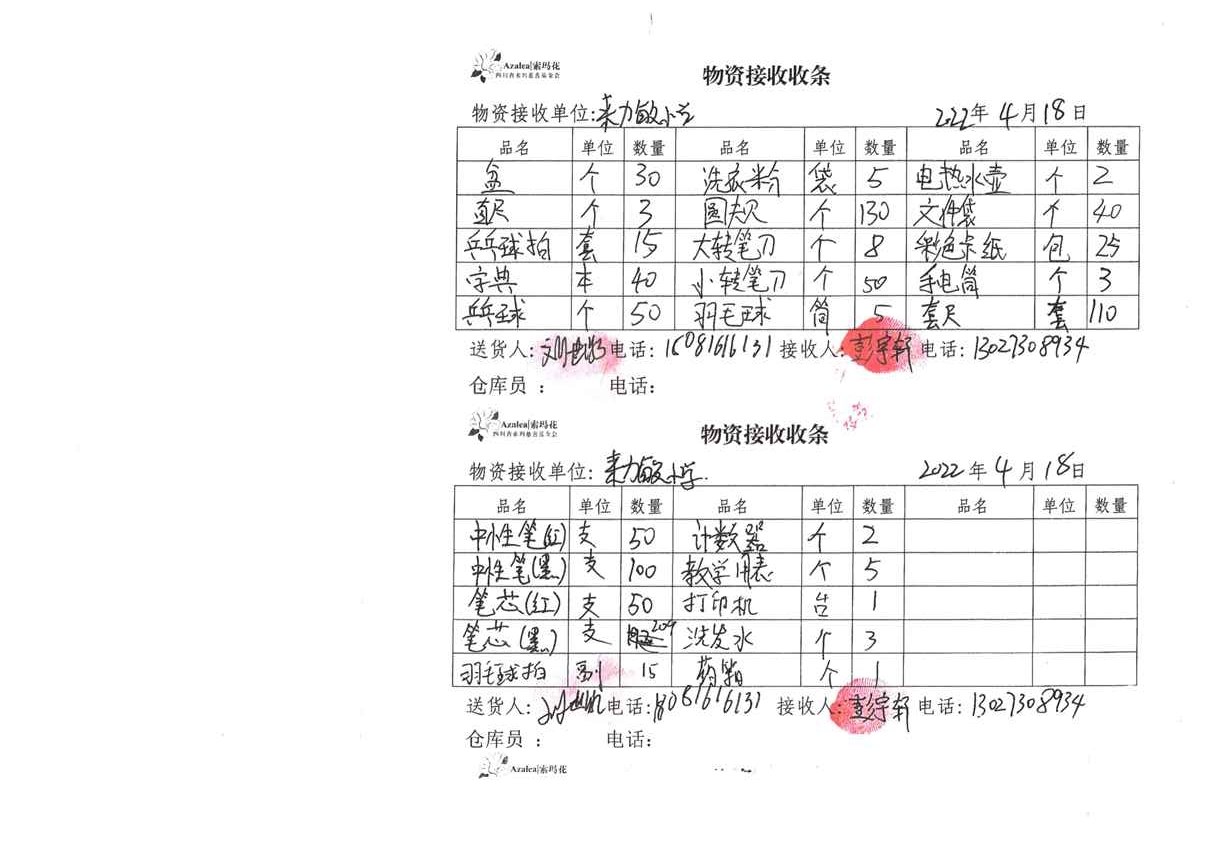 Azalea|索玛花
四川省索玛慈善基金会
物资接收收条
物资接收单位:来力敏小学 2022年4月18日
品名 单位 数量 品名 单位 数量 品名 单位 数量
盆 个 30 洗衣粉 袋 5 电热水壶 个 2
直尺 个 3 圆规 个 130 文件袋 个 40
乒乓球拍 套 15 大转笔刀 个 8 彩色卡纸 包 25
字典 本 40 小转笔刀 个 50 手电筒 个 3
乒乓球 个 50 羽毛球 筒 5 套尺 套 110
送货人: 电话: 18081616131 接收人:彭宇轩 电话:13027308934
仓库员 : 电话:
Azalea|索玛花
四川省索玛慈善基金会
物资接收收条
物资接收单位:来力敏小学. 2022年4月18日
品名 单位 数量 品名 单位 数量 品名 单位 数量
中性笔(红) 支 50 计数器 个 2
中性笔(黑) 支 100 教学用表 个 5
笔芯(红) 支 50 打印机 台 1
笔芯(黑) 支 洗发水 个 3
羽毛球拍 副 15 药箱 个 1
送货人: 电话:18081616131 接收人:彭宇轩 电话:13027308934
仓库员 : 电话:
Azalea|索玛花